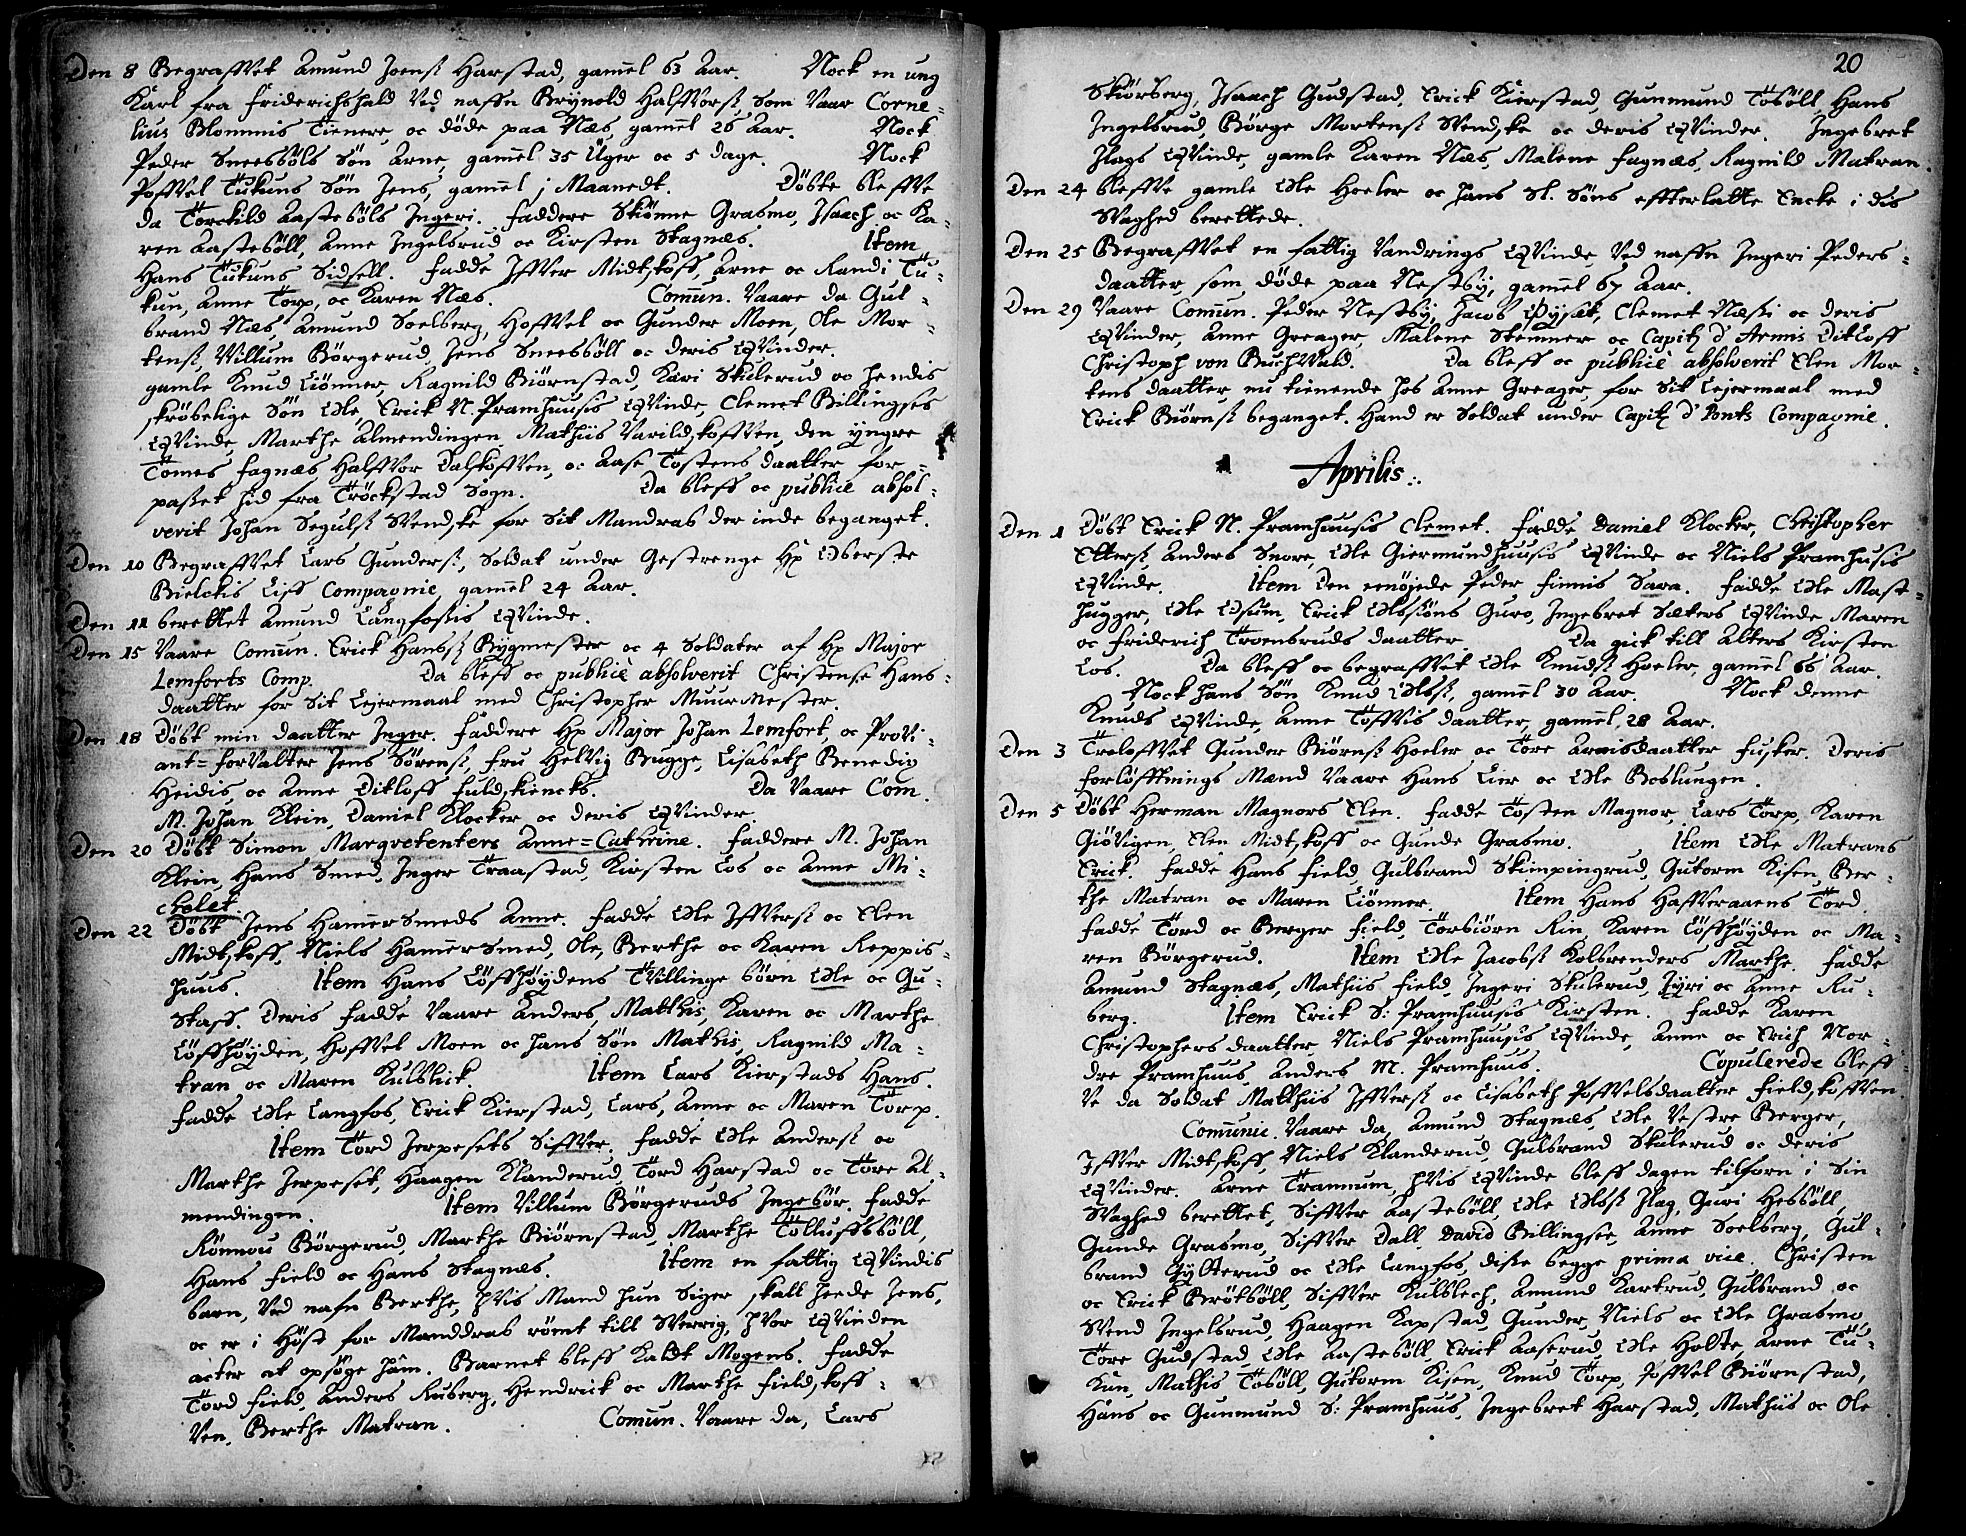 Den 8 Begraffvet Amund Joens: Harstad, gamel 63 Aar. Nock en ung
Karl fra Friderichshald Ved naffn Brynold Halffvors:, som Vaar Corne-
lius Blommis Tienere, oc døde paa Næs, gamel 26 Aar. Nock
Peder Sneesbøls Søn Arne, gamel 35 Uger oc 5 dage. Nock
Poffvel Tukuns Søn Jens, gamel j Maanedt. Døbte bleffve
da Torckild Aastebøls Ingeri. Faddere Skiønne Grasmo, Isaach oc Ka-
ren Aastebøll, Anne Ingelsrud oc Kirsten Stagnæs. Item
Hans Tukuns Sidsell. Fadde Iffver Midtskoff, Arne oc Randi Tu-
kun, Anne Torp, oc Karen Næs. Comun. Vaare da Gul-
brand Næs, Amund Soelberg, Hoffvel oc Gunder Moen, Ole Mor-
tens: Willum Børgerud, Jens Sneesbøll oc deris Qvinder.
gamle Knud Liønner, Ragnild Biørnstad, Kari Skulerud oc hendis
skrøbelige Søn Ole, Erick N. Pramhuusis Qvinde, Clemet Billingses
Qvinde, Marthe Almendingen, Mathiis Varildskoffven, den yngre
Tomes Fagnæs, Halffvor Dalskoffven, oc Aase Tostens daatter for-
passet hid fra Trøckstad Sogn. Da bleff oc publice absol-
verit Johan Seguls: Svendske for Sit Mandras der inde beganget.
Den 10 Begraffvet Lars Gunders:, Soldat under Gestrenge Hr Oberste
Bielckis Liff Compagnie, gamel 24 Aar.
Den 11 berettet Amund Langfossis Qvinde.
Den 15 Vaare Comun. Erick Hanss: Bygmester oc 4 Soldater af Hr Major
Lemforts Comp. Da bleff oc publice absolverit Christense Hans-
daatter for Sit Lejermaal med Christopher Muurmester.
Den 18 Døbt min daatter Inger. Faddere Hr Major Johan Lemfort, oc Provi-
ant=Forvalter Jens Sørens:, Fru Helvig Brugge, Lisabeth Benedix
Heidis, oc Anne Ditloff Fuldskiencks. Da Vaare Com.
M. Johan Klein, Daniel Klocker oc deris Qvinder.
Den 20 Døbt Simon Margretenters Anne=Cathrine. Faddere M. Johan
Klein, Hans Smed, Inger Traastad, Kirsten Los oc Anne Mi-
chelet.
Den 22 Døbt Jens Hamersmeds Anne. Fadde Ole Iffvers: oc Elen
Midtskoff, Niels Hamersmed, Ole, Berthe oc Karen Reppis-
huus. Item Hans Løffhøydens Tvillinge børn Ole oc Gu-
staff. Deris Fadde Vaare Anders, Matthis, Karen oc Marthe
Løffhøyden, Hoffvel Moen oc hans Søn Mathis, Ragnild Ma-
tran oc Maren Kulblick. Item Lars Kierstads Hans.
Fadde Ole Langfos, Erick Kierstad, Lars, Anne oc Maren Torp.
Item Tord Jerpesets Siffver. Fadde Ole Anders: oc
Marthe Jerpeset, Haagen Klanderud, Tord Harstad oc Tore Al-
mendingen. Item Villum Børgeruds Ingebør. Fadde
Rønnou Børgerud, Marthe Biørnstad, Marthe Tolluffsbøll,
Hans Field oc Hans Stagnæs. Item en fattig Qvindis
barn, Ved nafn Berthe, hvis Mand hun Siger skall heede Jens,
oc er i Høst for Manddras rømt till Sverrig, hvor Qvinden
acter at opsøge ham. Barnet bleff kaldt Mogens. Fadde
Tord Field, Anders Ruberg, Hendrick oc Marthe Fieldskoff-
ven, Berthe Matran. Comun. Vaare da, Lars
20
Skiørberg, Isaach Gudstad, Erick Kierstad, Gunmund Tosbøll, Hans
Ingelsrud, Børge Mortens: Svendske oc deris Qvinder. Ingebret
Flags Qvinde, gamle Karen Næs, Malene Fagnæs, Ragnild Matran.
Den 24 bleffve gamle Ole Hoeler oc hans Sl. Søns effterlatte Encke i dis
Svaghed berettede.
Den 25 Begraffvet en fattig Vandrings Qvinde Ved naffn Ingeri Peders-
daatter, som døde paa Nestby, gamel 67 Aar.
Den 29 Vaare Comun. Peder Nestby, Jacob Øyset, Clemet Næss: oc deris
Qvinder, Anne Greager, Malene Stemner oc Capit: d'Armis Ditloff
Christoph von Buchwald. Da bleff oc publicè absolverit Elen Mor-
tens daatter, nu tienende hos Anne Greager, for Sit Lejermaal med
Erick Biørns: beganget. Hand er Soldat under Capit: d'Ponts Compagnie.
Aprilis.
Den 1 Døbt Erick N. Pramhuusis Clemet. Fadde Daniel Klocker, Christopher
Olters:, Anders Snore, Ole Giermundhuusis Qvinde oc Niels Pramhusis
Qvinde. Item den eenøjede Peder Finnis Sara. Fadde Ole Mast-
hugger, Ole Osum, Erick Olssøns Guro, Ingebret Sæters Qvinde Maren
oc Friderich Trombruds daatter. Da gick till Alters Kirsten
Los. Da bleff oc begraffvet Ole Knuds: Hoeler, gamel 66 Aar.
Nock hans Søn Knud Olss:, gamel 30 Aar. Nock denne
Knuds Qvinde, Anne Toffvis daatter, gamel 28 Aar.
Den 3 Troloffvet Gunder Biørns: Hoeler oc Tore Arnisdaatter Fusker. Deris
Forløffnings Mænd Vaare Hans Lier oc Ole Boslungen.
Den 5 Døbt Herman Magnors Elen. Fadde Tosten Magnor, Lars Torp, Karen
Giøvigen, Elen Midtskoff oc Gunde Grasmo. Item Ole Matrans
Erick. Fadde Hans Field, Gulbrand Skimpingrud, Gutorm Kisen, Ber-
the Matran oc Maren Liønner. Item Hans Haffveraaens Tord.
Fadde Tord oc Berger Field, Torbiørn Rin, Karen Løffhøyden oc Ma-
ren Børgerud. Item Ole Jacobs: Kolbrenders Marthe. Fadde
Amund Stagnæs, Mathiis Field, Ingeri Skulerud, Siri oc Anne Ru-
berg. Item Erick S: Pramhuusis Kirsten. Fadde Karen
Christophers daatter, Niels Pramhuusis Qvinde, Anne oc Erich Nor-
dre Pramhuus, Anders M. Pramhuus. Copulerede bleff-
ve da Soldat Matthiis Iffvers: oc Lisabeth Poffvelsdaatter Fieldskoffven.
Comunic. Vaare da, Amund Stagnæs, Ole Vestre Berger,
Iffver Midtskoff, Niels Klanderud, Gulbrand Skulerud oc deris
Qvinder. Arne Trannum, hvis Qvinde bleff dagen tilforn i Sin
Svaghed berettet, Siffver Aastebøll, Ole Olss: Flag, Guri Hesbøll,
Gunde Grasmo, Siffver Dall, David Billingsee, Anne Soelberg, Gul-
brand Gylterud oc Ole Langfos, disse begge prima vice. Christen
oc Erick Brøtbøll, Siffver Kulblech, Amund Kartrud, Gulbrand oc
Svend Ingelsrud, Haagen Kapstad, Gunder, Niels oc Ole Grasmo,
Tore Gudstad, Ole Aastebøll, Erick Aaserud, Ole Holte, Arne Tu-
kun, Mathis Tosbøll, Gutorm Kisen, Knud Torp, Poffvel Biørnstad,
Hans oc Gunmund S: Pramhuus, Ingebret Harstad, Mathiis oc Ole